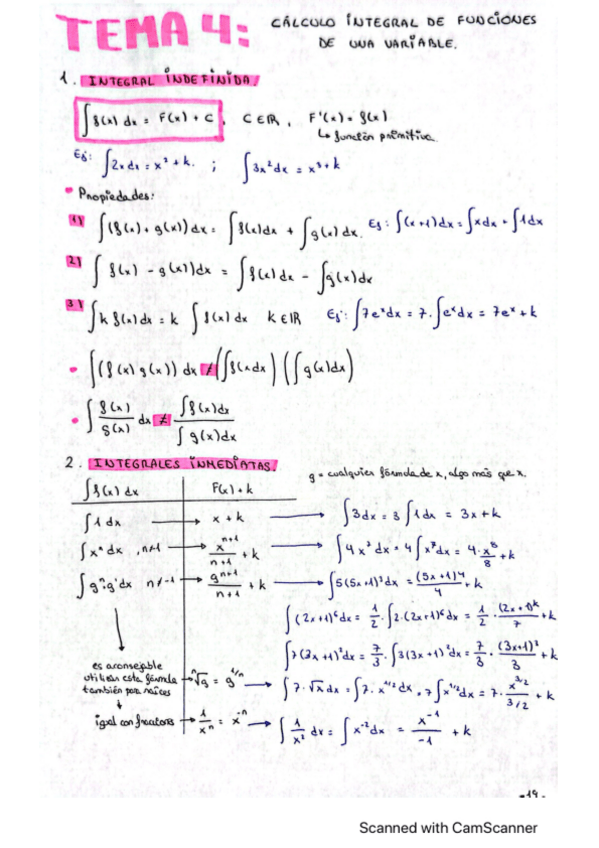 TEMA 4: CÁLCULO INTEGRAL DE FUNCIONES
DE UNA VARIABLE.
1. INTEGRAL INDEFINIDA
∫f(x) dx = F(x) + C, C ∈ ℝ, F'(x) = f(x)
↳ función primitiva.
Ej: ∫2x dx = x² + k. ; ∫3x² dx = x³ + k
• Propiedades:
1) ∫(f(x) + g(x)) dx = ∫f(x) dx + ∫g(x) dx. Ej: ∫(x+1) dx = ∫x dx + ∫1 dx
2) ∫f(x) - g(x)) dx = ∫f(x) dx - ∫g(x) dx
3) ∫k f(x) dx = k ∫f(x) dx k ∈ ℝ Ej: ∫7eˣ dx = 7·∫eˣ dx = 7eˣ + k
• ∫(f(x) g(x)) dx ≠ (∫f(x dx) (∫g(x) dx)
• ∫ f(x)/g(x) dx ≠ ∫f(x) dx / ∫g(x) dx
2. INTEGRALES INMEDIATAS.
g = cualquier fórmula de x, algo más que x.
∫f(x) dx F(x) + k
∫1 dx → x + k → ∫3 dx = 3 ∫1 dx = 3x + k
∫xⁿ dx, n≠1 → xⁿ⁺¹/n+1 + k → ∫4x⁷ dx = 4∫x⁷ dx = 4·x⁸/8 + k
∫gⁿ·g' dx n≠-1 → gⁿ⁺¹/n+1 + k → ∫5(5x+1)³ dx = (5x+1)⁴/4 + k
∫(2x+1)⁶ dx = 1/2·∫2·(2x+1)⁶ dx = 1/2 · /7 + k
∫7(3x+1)² dx = 7/3·∫3(3x+1)² dx = 7/3·(3x+1)³/3 + k
es aconsejable
utilizar esta fórmula
también para raíces → ⁿ√g = g^(1/n) → ∫7·√x dx = ∫7·x^(1/2) dx = 7∫x^(1/2) dx = 7·x^(3/2)/3/2 + k
↓
igual con fractores → 1/xⁿ = x⁻ⁿ → ∫1/x² dx = ∫x⁻² dx = x⁻¹/-1 + k
-19-
Scanned with CamScanner